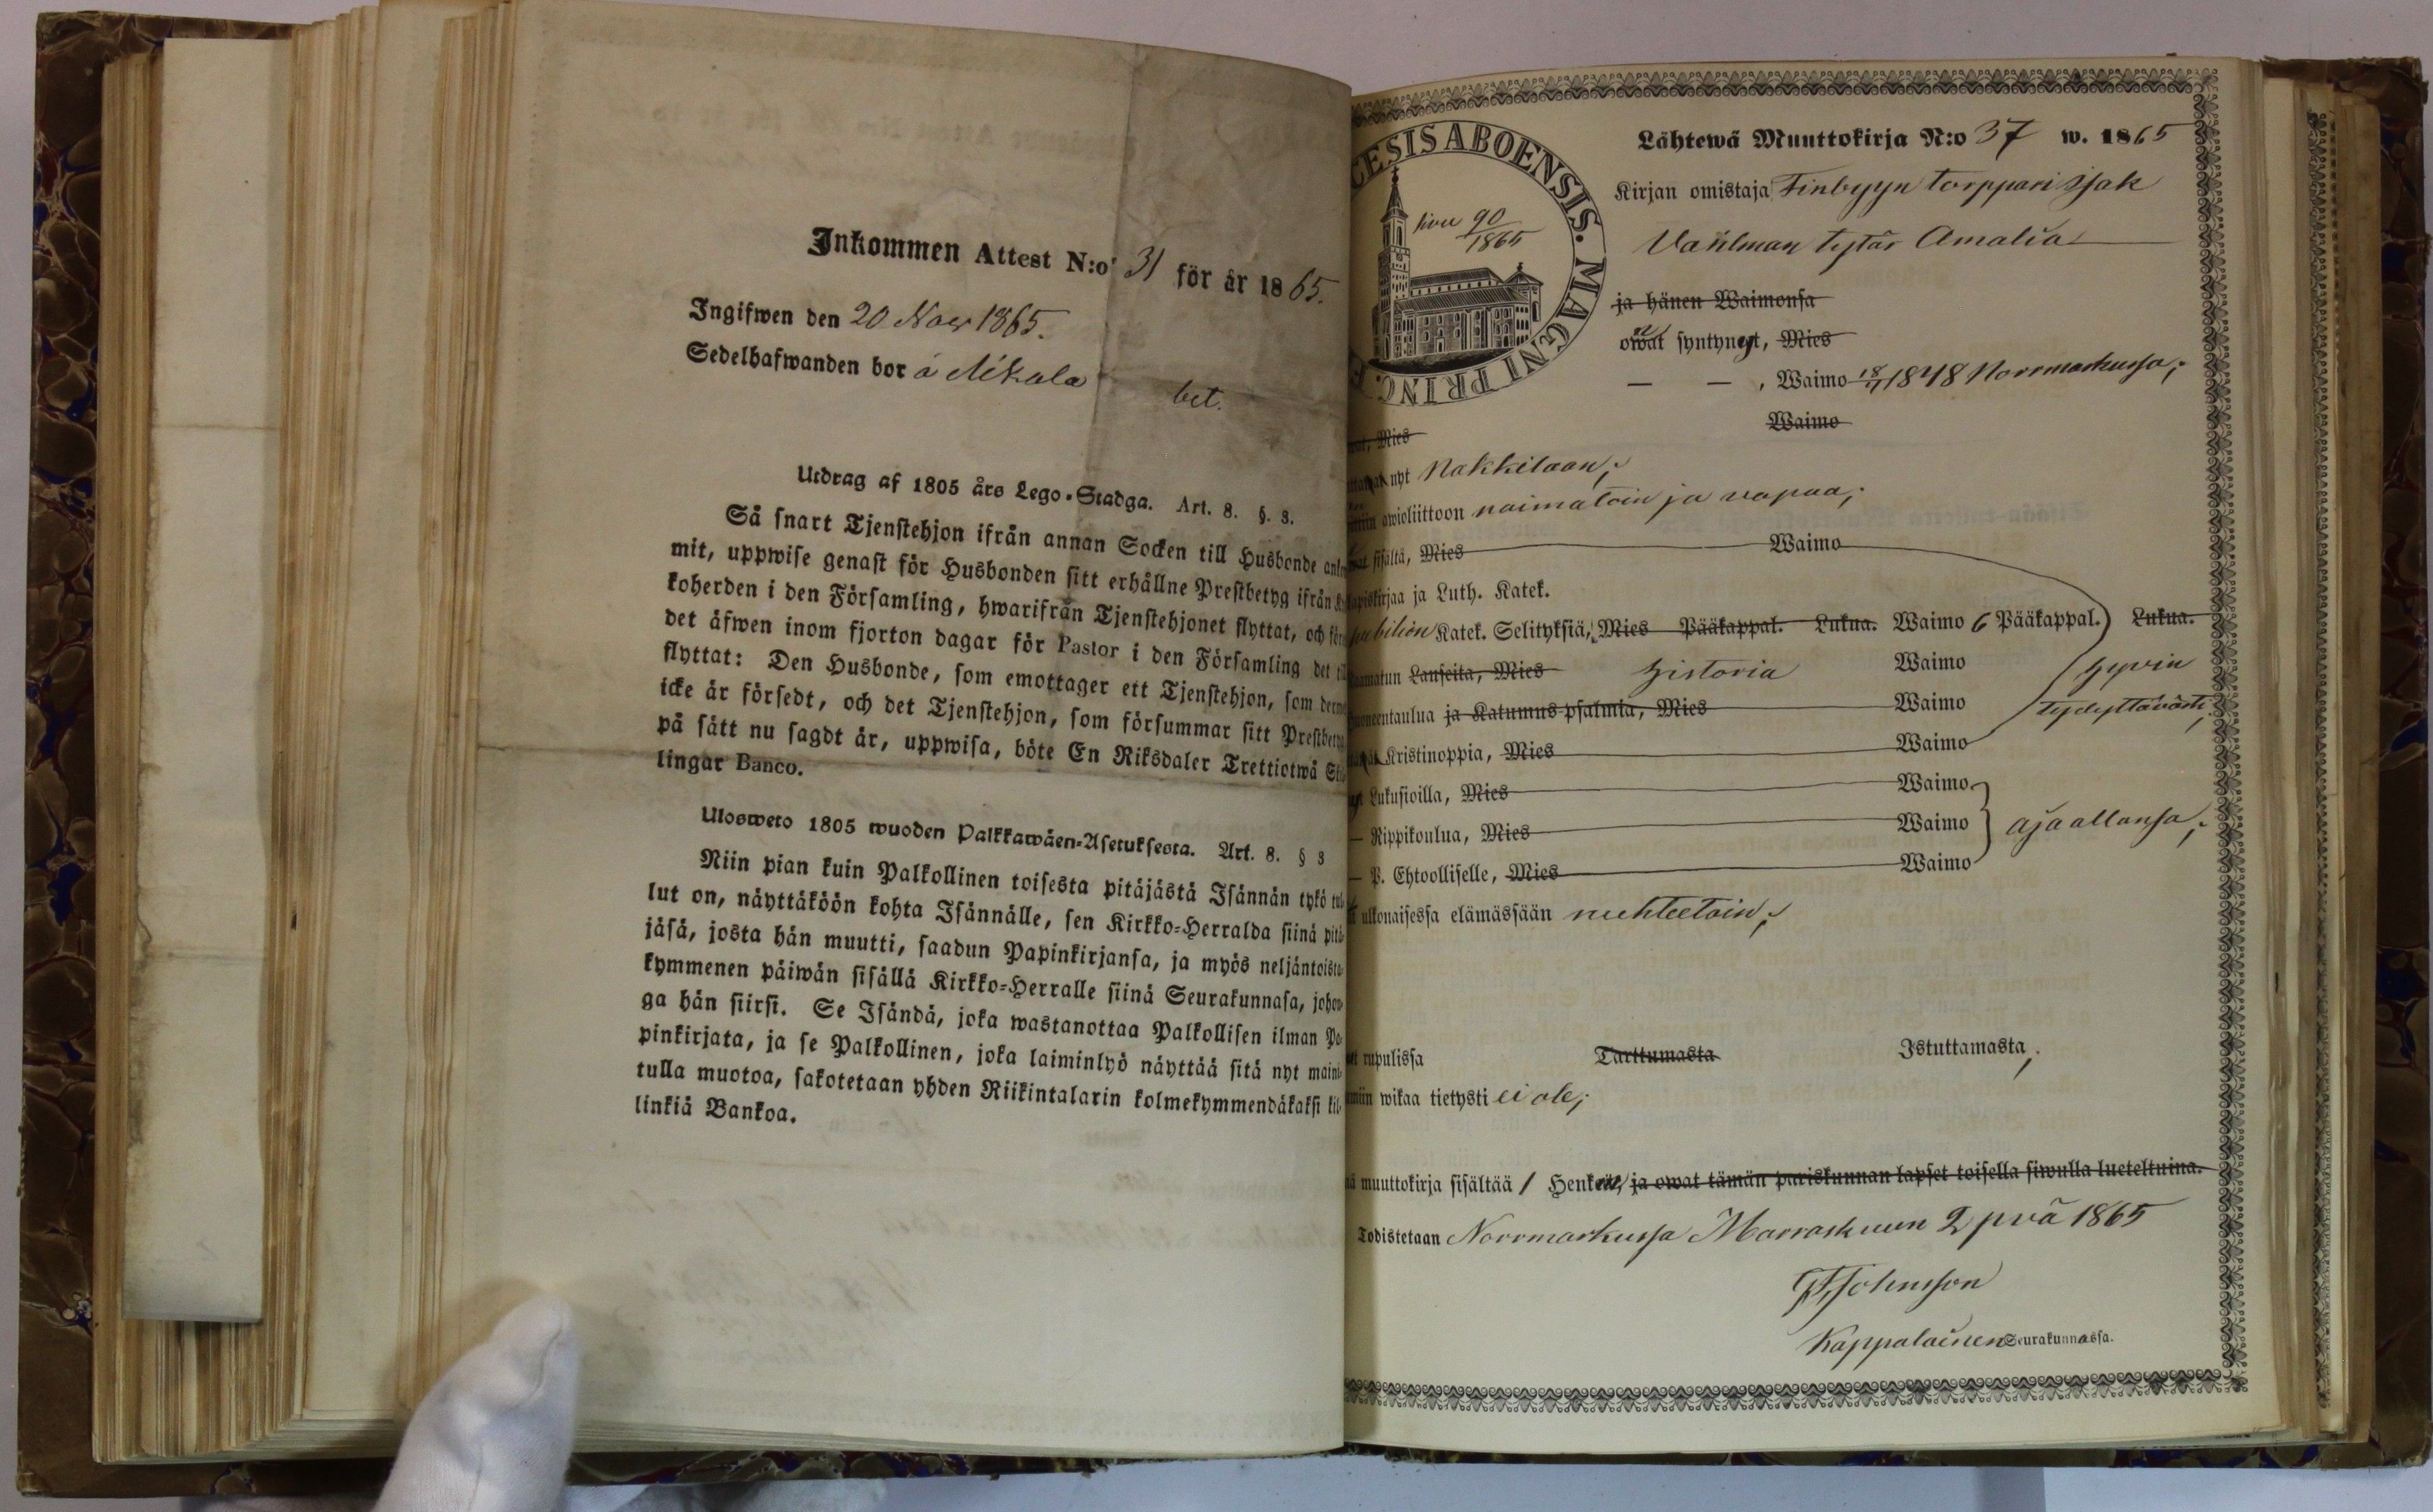 Inkommen Attest N:o 31 för år 1865.
Ingifwen den 20 Nov 1865.
Sedelhafwanden bor å Nikala bet.
Utdrag af 1805 års Lego-Stadga. Art. 8. §. 8.
Så snart Tjenstehjon ifrån annan Socken till Husbonde
mit, uppwise genast för Husbonden sitt erhållne Prestbetyg ifrån
koherden i den Församling, hwarifrån Tjenstehjonet flyttat, och
det äfwen inom fjorton dagar för Pastor i den Församling det
flyttat: Den Husbonde, som emottager ett Tjenstehjon, som
icke är försedt, och det Tjenstehjon, som försummar sitt
på sätt nu sagdt är, uppwisa, böte En Riksdaler Trettiotwå
lingar Banco.
Ulosweto 1805 wuoden Palkkawäen-Asetuksesta. Art. 8. § 8
Niin pian kuin Palkollinen toisesta pitäjästä Isännän tykö tul-
lut on, näyttäköön kohta Isännälle, sen Kirkko-Herralda siinä pitä-
jäsä, josta hän muutti, saadun Papinkirjansa, ja myös neljäntoista-
kymmenen päiwän sisällä Kirkko-Herralle siinä Seurakunnasa, johon-
ga hän siirsi. Se Isändä, joka wastanottaa Palkollisen ilman Pa-
pinkirjata, ja se Palkollinen, joka laiminlyö näyttää sitä nyt maini-
tulla muotoa, sakotetaan yhden Riikintalarin kolmekymmendäkaksi kil-
linkiä Bankoa.
CESIS ABOENSIS. MAGNI PRINC. F
sivu 90/1865
Lähtewä Muuttokirja N:o 37 w. 1865
Kirjan omistaja Finbyyn torppari Isak
Vahlman tytär Amalia
ja hänen Waimonsa
owat syntynyt, Mies
, Waimo 18/7 1848 Norrmarkussa;
Mies Waimo
nyt Nakkilaan;
awioliittoon naimatoin ja vapaa;
sisältä, Mies Waimo
ja Luth. Katek.
Katek. Selityksiä, Mies Pääkappal. Lukua. Waimo 6 Pääkappal. Lukua.
Lauseita, Mies historia Waimo hyvin
ja Katumus-psalmia, Mies Waimo tydyttävästi;
Kristinoppia, Mies Waimo
Lukusioilla, Mies Waimo
— Rippikoulua, Mies Waimo ajaallansa;
— P. Ehtoolliselle, Mies Waimo
ulkonaisessa elämässään nuhteetoin;
rupulissa Tarttumasta Istuttamasta;
wikaa tietysti ei ole;
muuttokirja sisältää 1 Henken, ja owat tämän pariskunnan lapset toisella siwulla lueteltuina.
Todistetaan Norrmarkussa Marraskuun 2 pvä 1865
Johnsson
Kappalainen Seurakunnassa.